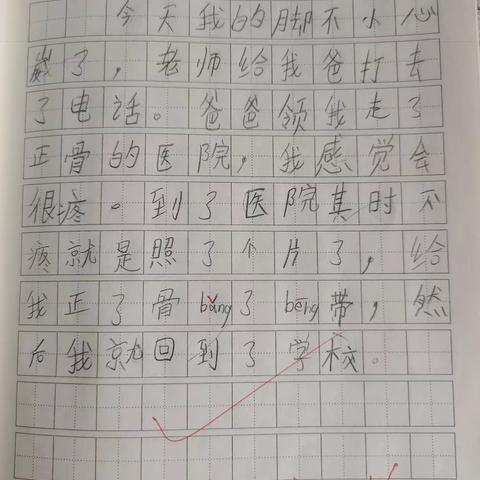 今天我的脚不小心
崴了，老师给我爸打去
了电话。爸爸领我走了
正骨的医院，我感觉会
很疼。到了医院其时不
疼就是照了个片了，给
我正了骨bǎng了bēng带，然
后我就回到了学校。